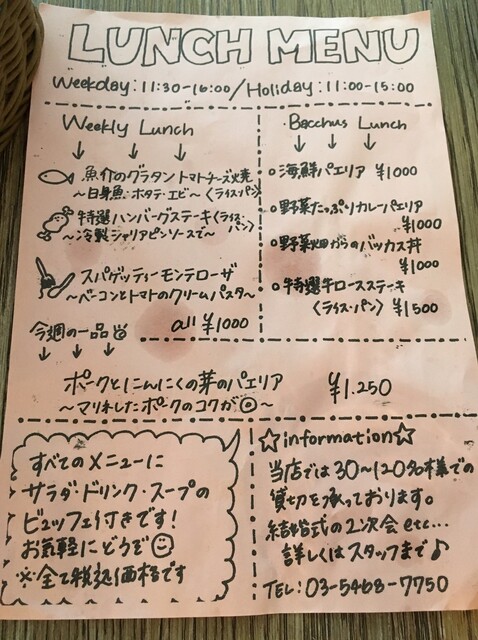 LUNCH MENU
Weekday: 11:30-16:00/Holiday: 11:00-15:00
Weekly Lunch
魚介のグラタントマトチーズ焼
~白身魚・ホタテ・エビ~〈ライス・パン〉
特選ハンバーグステーキ〈ライス・パン〉
~冷製シャリアピンソースで~
スパゲッティーモンテローザ
~ベーコンとトマトのクリームパスタ~
all ¥1000
Bacchus Lunch
海鮮パエリア ¥1000
野菜たっぷりカレーパエリア
¥1000
野菜畑からのバッカス丼
¥1000
特選牛ロースステーキ
〈ライス・パン〉 ¥1500
今週の一品
ポークとにんにくの芽のパエリア ¥1.250
~マリネしたポークのコクが◎~
すべてのメニューに
サラダ・ドリンク・スープの
ビュッフェ付きです!
お気軽にどうぞ☺
※全て税込価格です
☆information☆
当店では30~120名様での
貸切を承っております。
結婚式の2次会etc...
詳しくはスタッフまで♪
TEL: 03-5468-7750